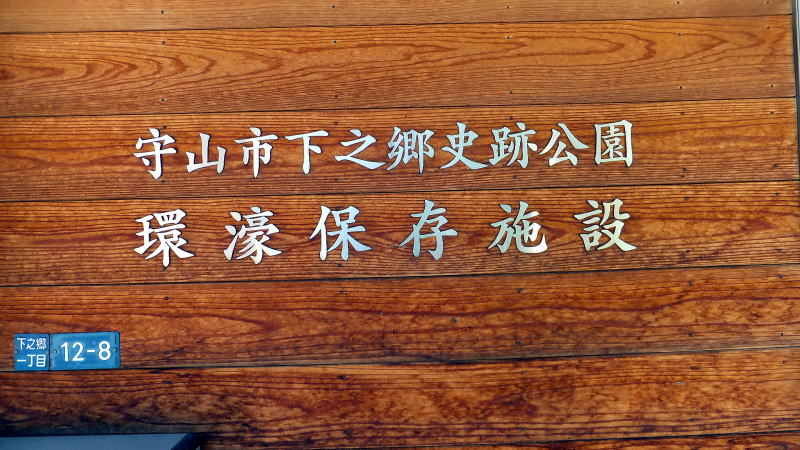 守山市下之郷史跡公園
環濠保存施設
下之郷
一丁目
12-8